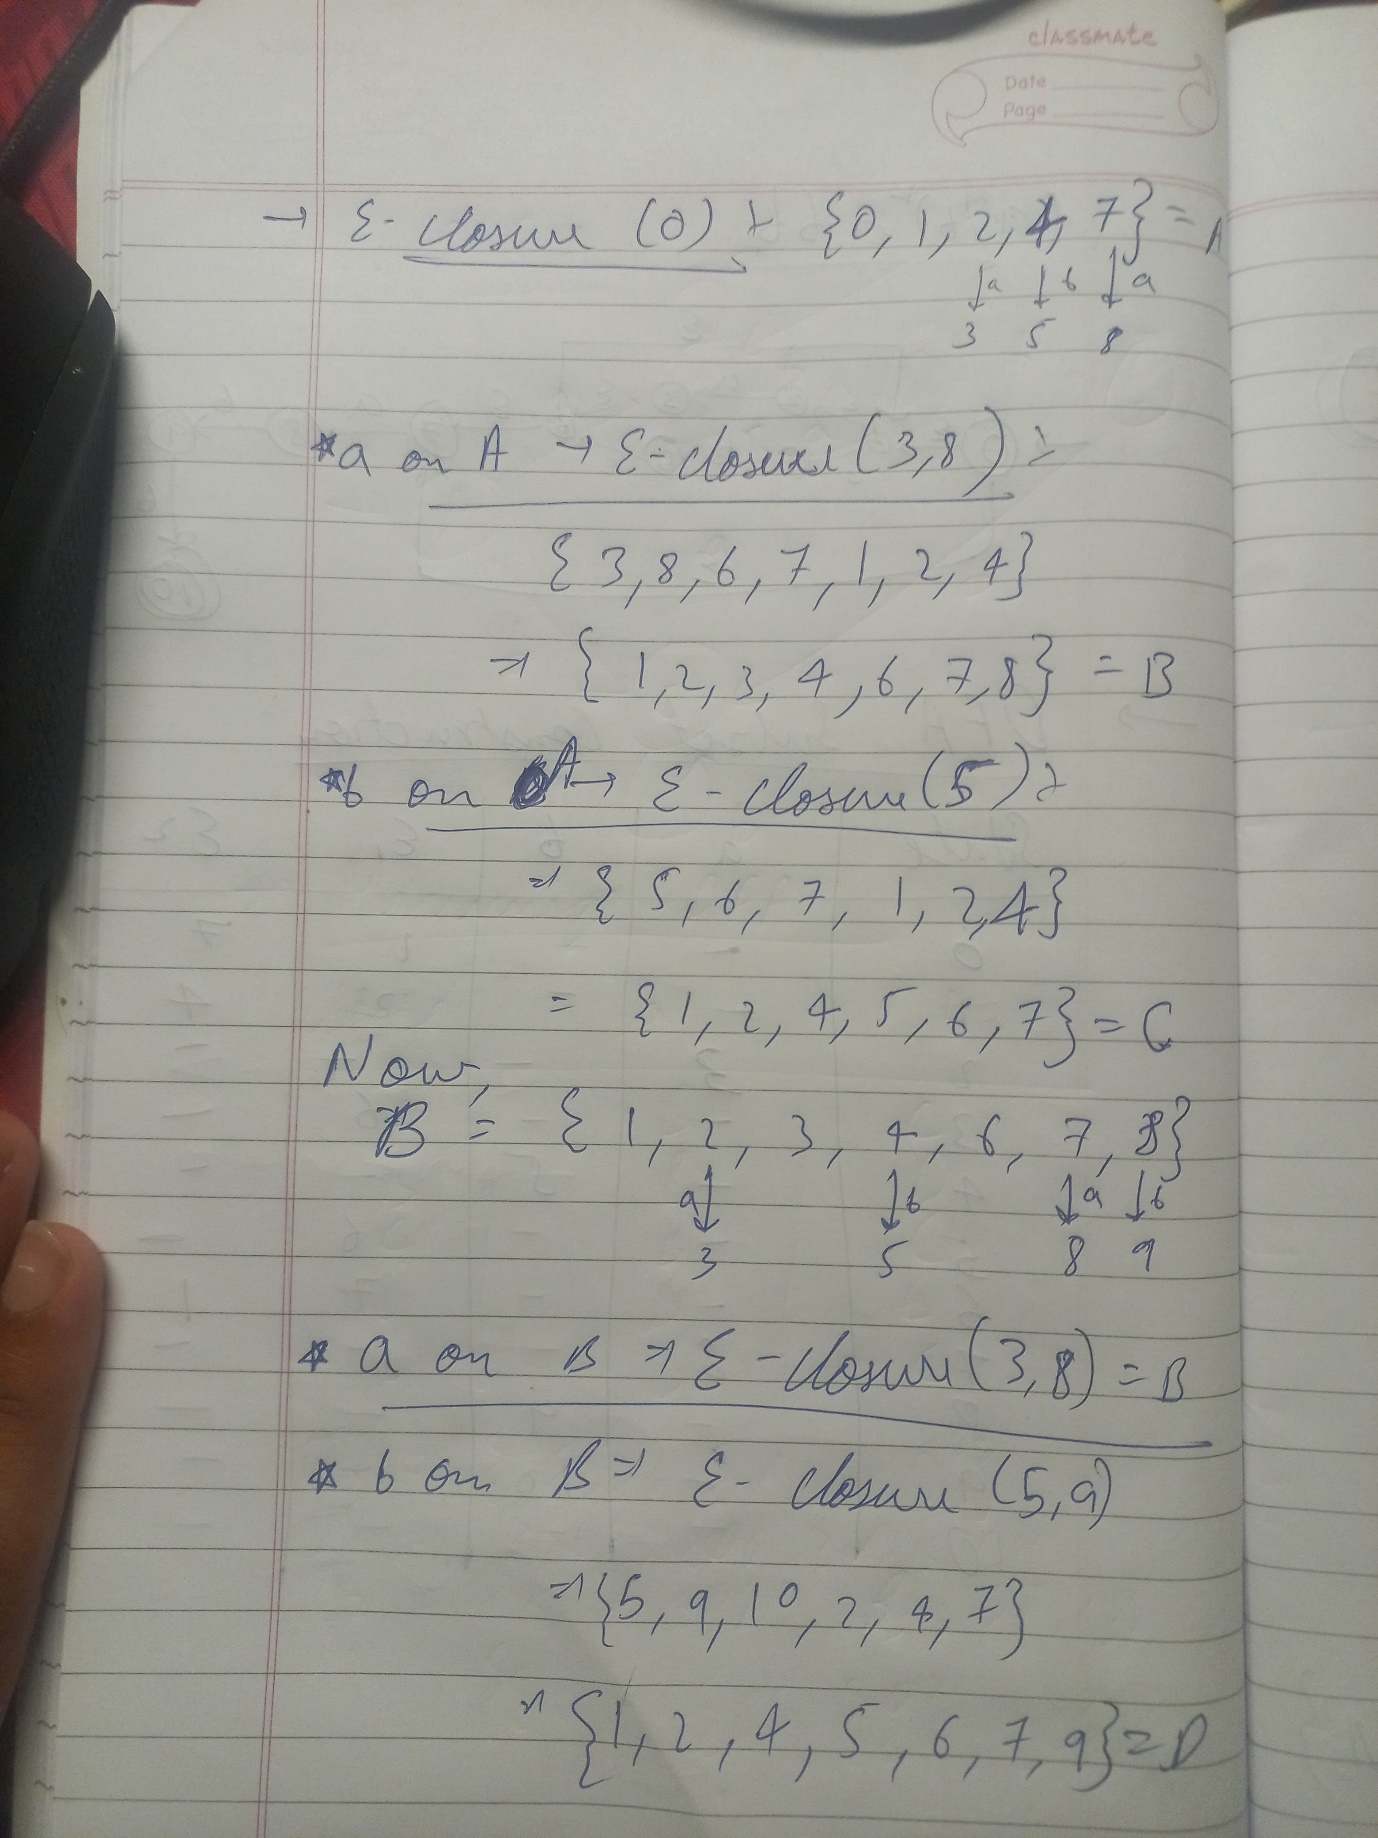 classmate
Date
Page
→ ε- closure (0) = {0, 1, 2, 4, 7} = A
↓a ↓b ↓a
3 5 8
*a on A → ε-closure (3,8) =
{3,8,6,7,1,2,4}
⇒ {1,2,3,4,6,7,8} = B
*b on A → ε-closure(5) =
⇒ {5,6,7,1,2,4}
= {1,2,4,5,6,7} = C
Now,
B = {1,2,3,4,6,7,8}
a↓ ↓b ↓a ↓b
3 5 8 9
* a on B ⇒ ε-closure(3,8) = B
* b on B ⇒ ε- closure (5,9)
⇒ {5,9,10,2,4,7}
⇒ {1,2,4,5,6,7,9} = D